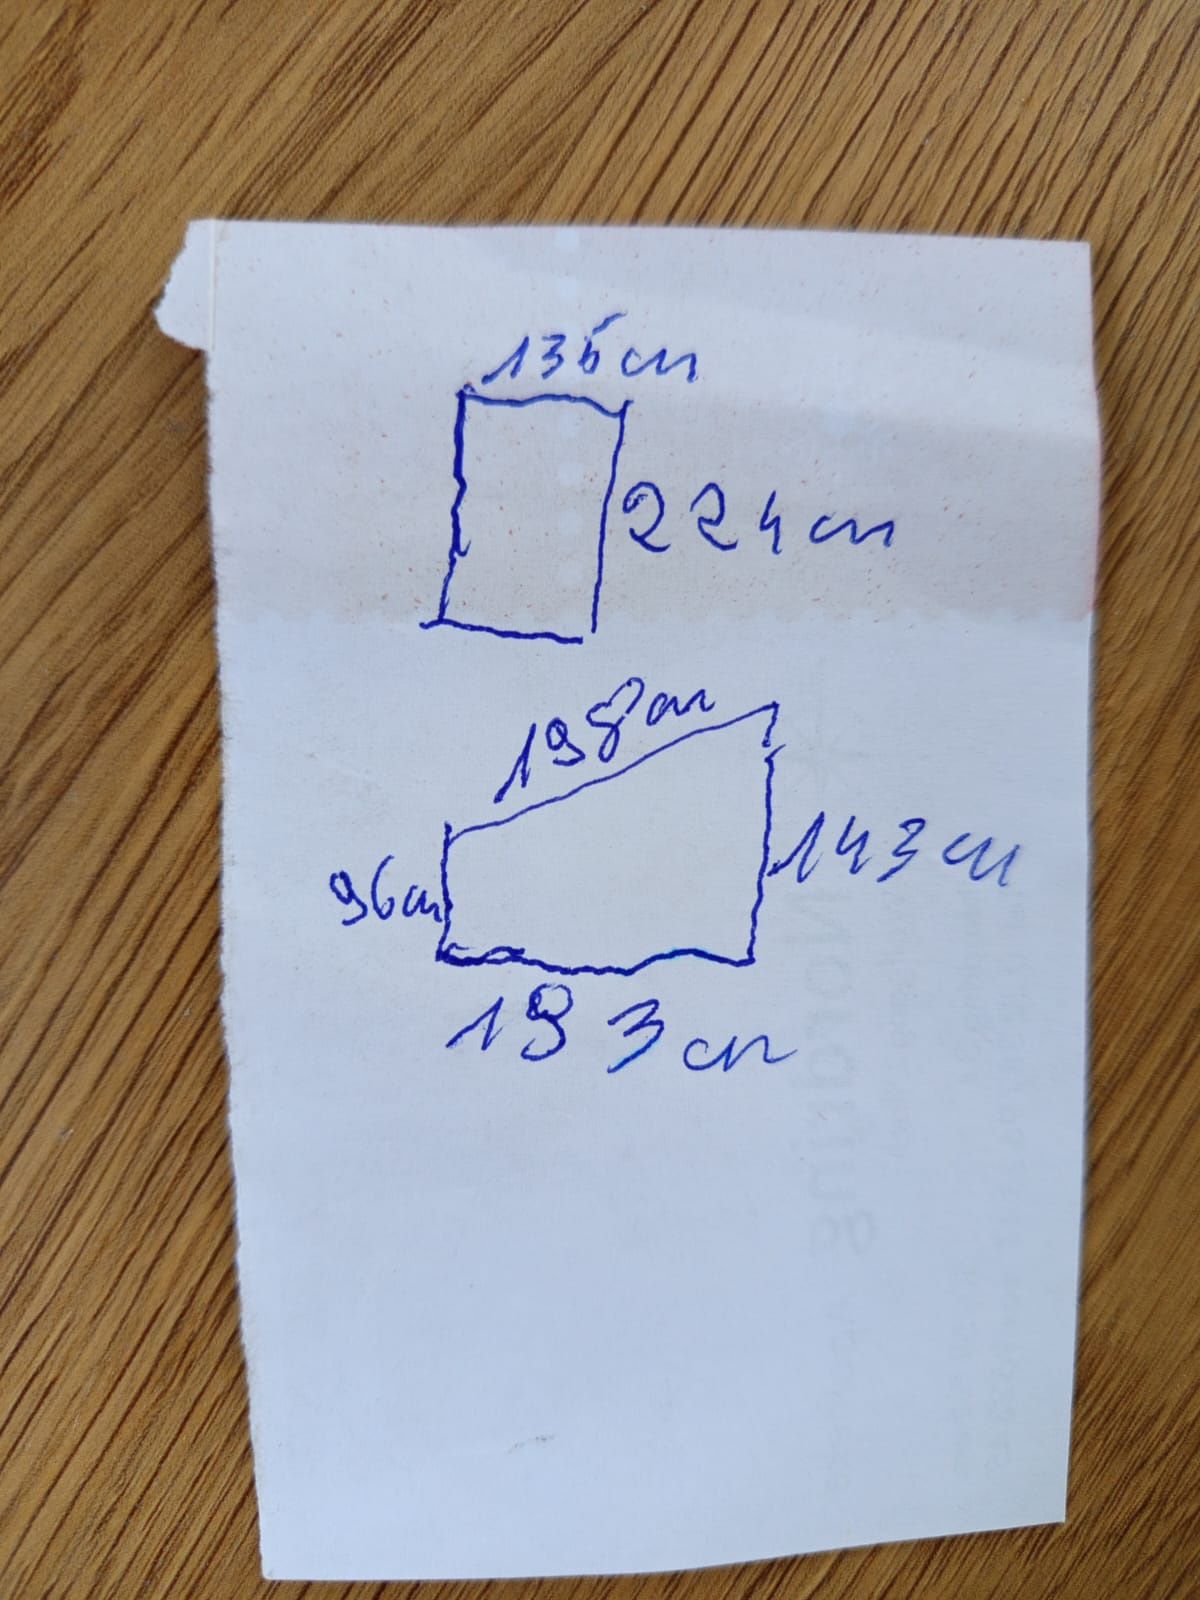 135cm
224cm
198cm
96cm
143cm
193cm